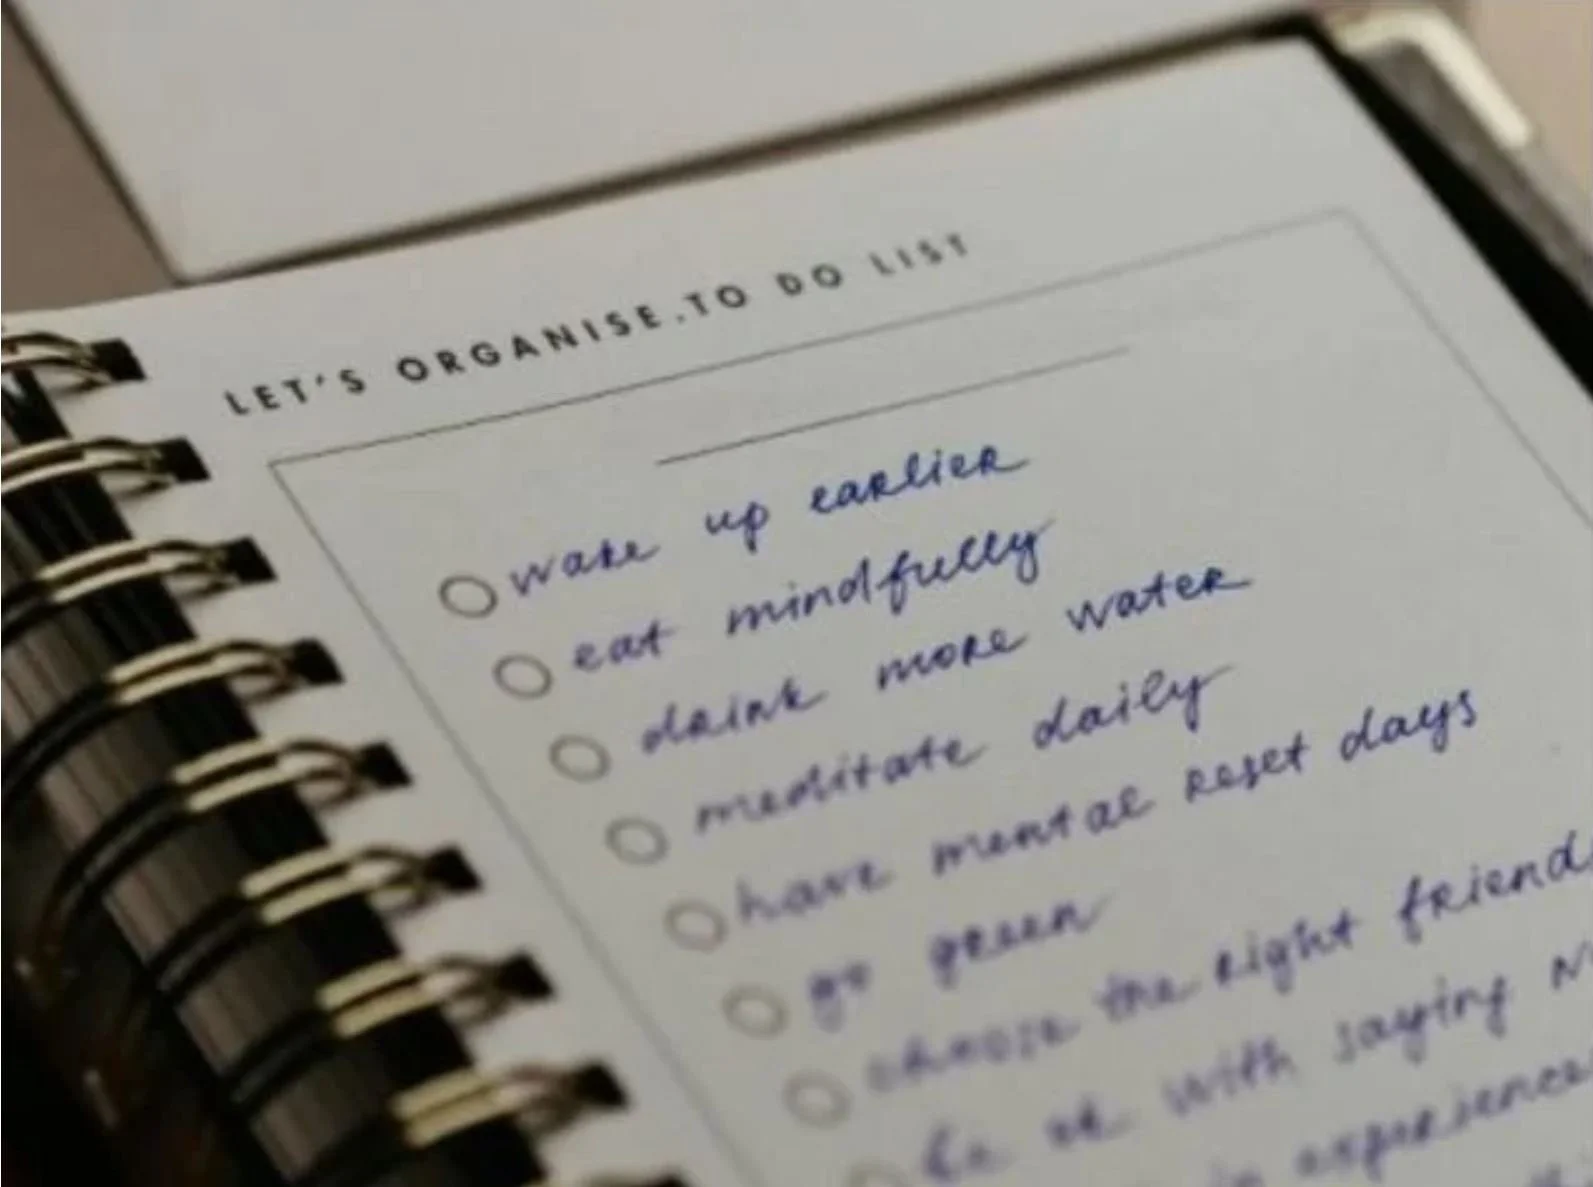 LET'S ORGANISE.TO DO LIST
wake up earlier
eat mindfully
drink more water
meditate daily
have mental reset days
go green
choose the right friend
be ok with saying
in experience